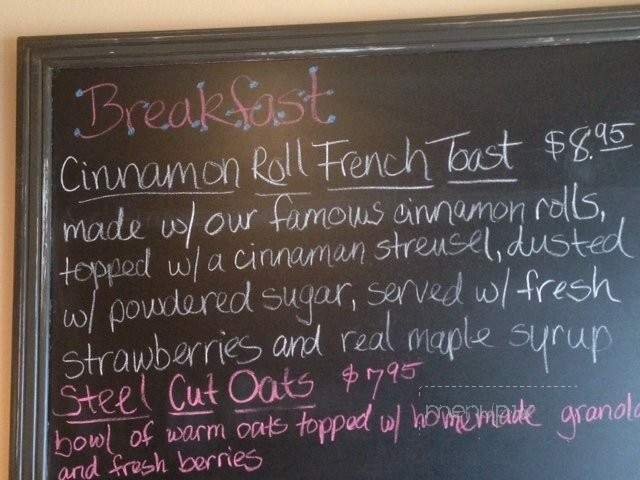 Breakfast
Cinnamon Roll French Toast $8.95
made w/ our famous cinnamon rolls,
topped w/a cinnaman streusel, dusted
w/ powdered sugar, served w/ fresh
strawberries and real maple syrup
Steel Cut Oats $7.95
bowl of warm oats topped w/ homemade granola
and fresh berries